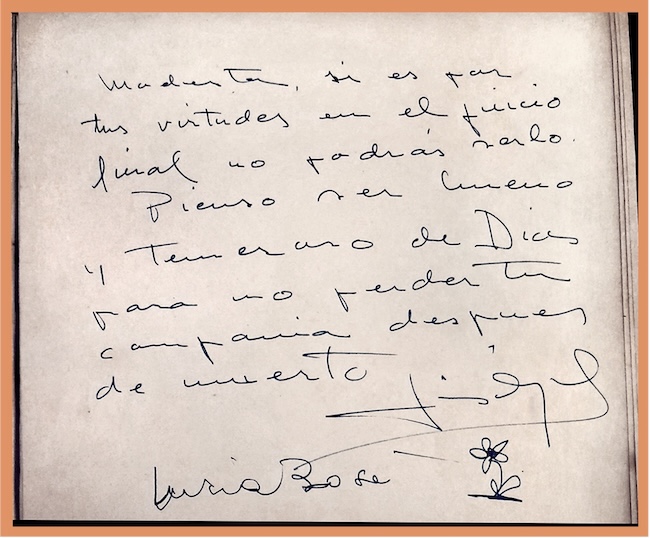 Modesta, si es por
tus virtudes en el juicio
final no podrás serlo.
Pienso ser bueno
y temeroso de Dios
para no perder tu
compania despues
de muerto
Lucia Bosé